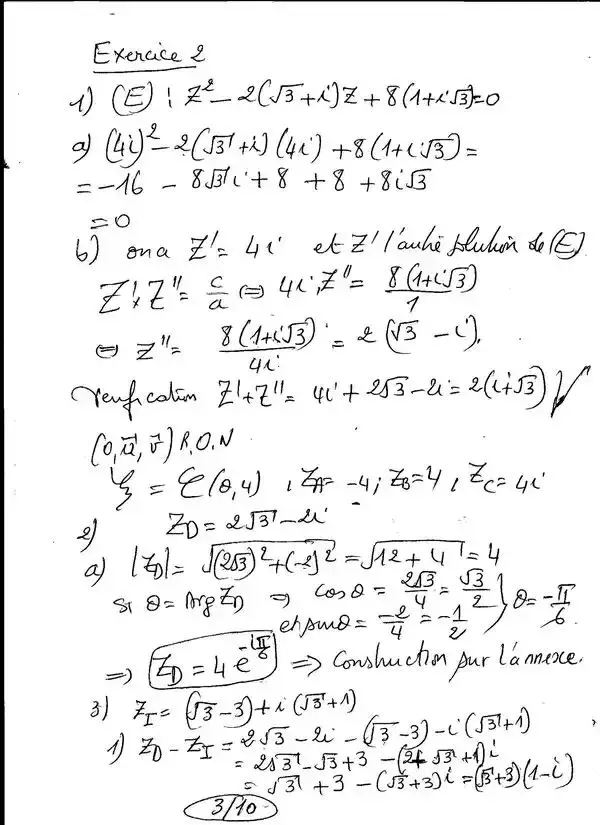 Exercice 2
1) (E) : Z² - 2(√3 + i)Z + 8(1+i√3)=0
a) (4i)² - 2(√3 + i)(4i) + 8(1+i√3) =
= -16 - 8√3 i + 8 + 8 + 8i√3
= 0
b) on a Z' = 4i et Z' l'autre solution de (E)
Z' × Z'' = c/a ⇔ 4i . Z'' = 8(1+i√3)/1
⇔ Z'' = 8(1+i√3)/4i = 2(√3 - i).
Verification Z' + Z'' = 4i + 2√3 - 2i = 2(i+√3) √
(O, u⃗, v⃗) R.O.N
𝒞 = 𝒞(O,4) , Z_A = -4 ; Z_B = 4 , Z_C = 4i
2) Z_D = 2√3 - 2i
a) |Z_D| = √((2√3)² + (-2)²) = √(12 + 4) = 4
si θ = Arg Z_D ⇒ cos θ = 2√3/4 = √3/2
et sin θ = -2/4 = -1/2 } θ = -π/6.
⇒ Z_D = 4 e^(-iπ/6) ⇒ Construction sur l'annexe.
3) Z_I = (√3 - 3) + i(√3 + 1)
1) Z_D - Z_I = 2√3 - 2i - (√3 - 3) - i(√3 + 1)
= 2√3 - √3 + 3 - (2 + √3 + 1)i
= √3 + 3 - (√3 + 3)i = (√3 + 3)(1 - i)
3/10